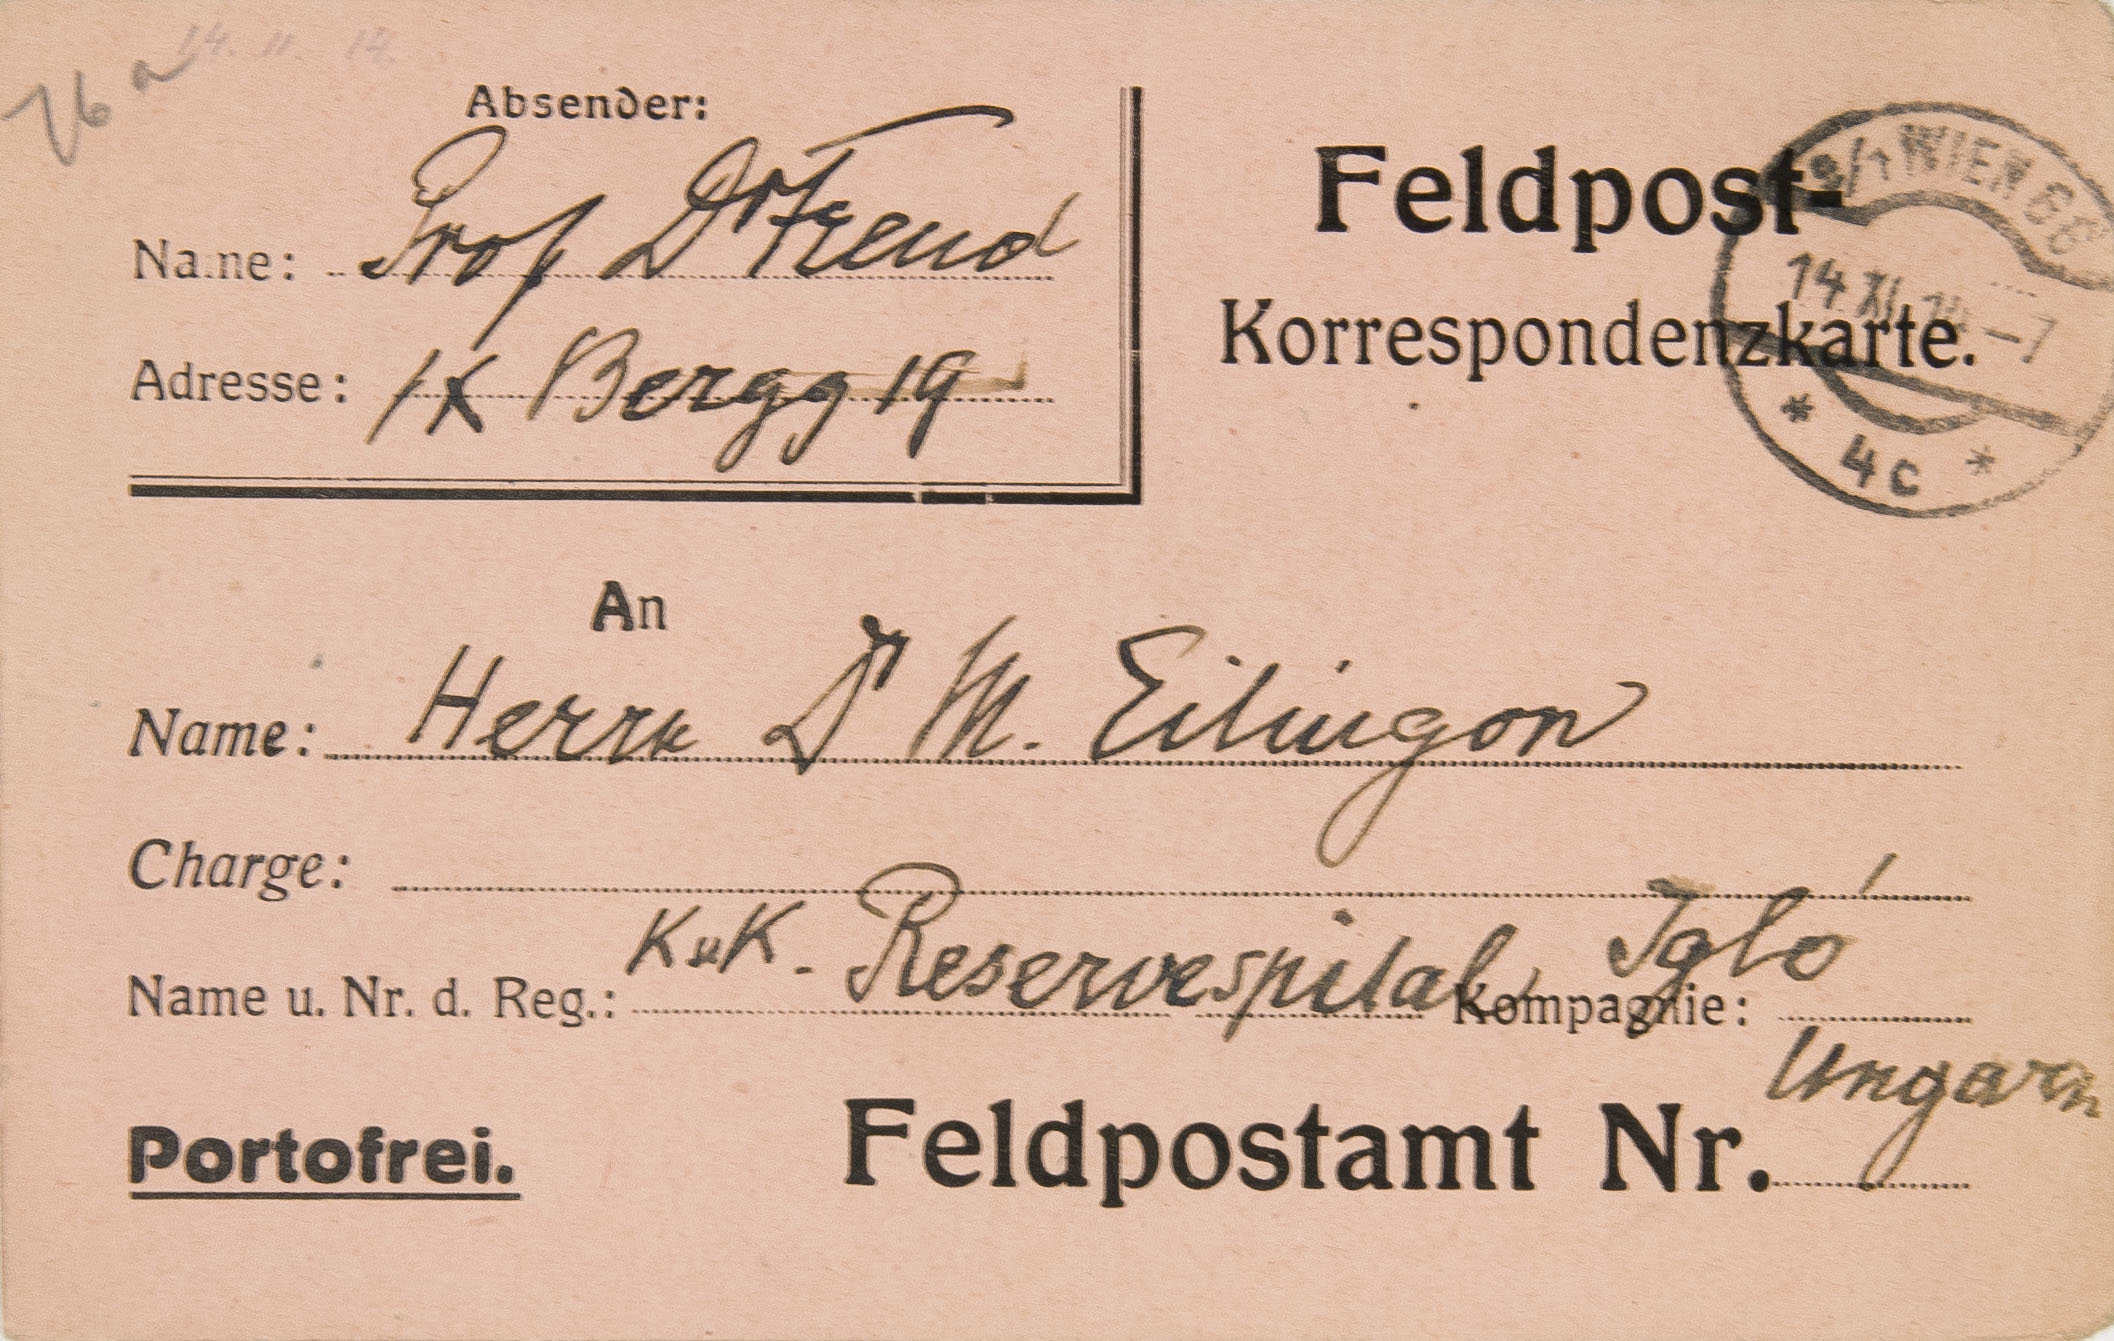 76a
14. 11. 14.
Absender:
Name: Prof Dr Freud
Adresse: IX Bergg 19
Feldpost-
Korrespondenzkarte.
9/1 WIEN 66
14 XI 14 -7
* 4c *
An
Name: Herrn Dr M. Eitingon
Charge:
Name u. Nr. d. Reg.: K u K. Reservespital, Kompagnie: Igló
Ungarn
Portofrei.
Feldpostamt Nr.